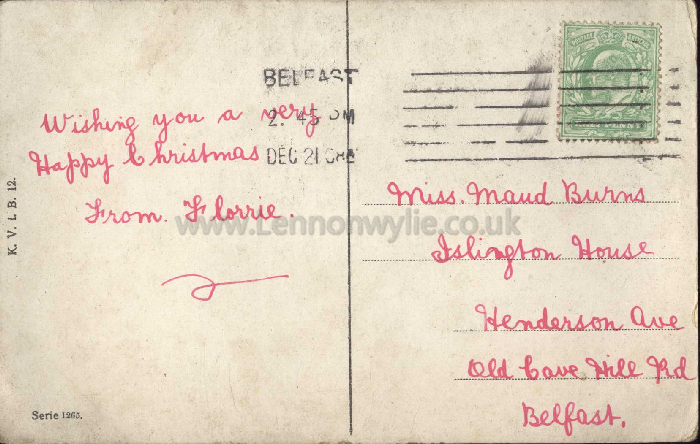 BELFAST
2.45 PM
DEC 21 08
Wishing you a very
Happy Christmas
From. Florrie.
K. V. i. B. 12.
Serie 1265.
www.Lennonwylie.co.uk
Miss. Maud Burns
Islington House
Henderson Ave
Old Cave Hill Rd
Belfast.